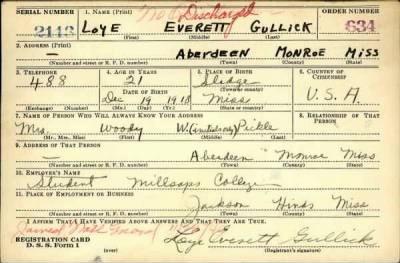 SERIAL NUMBER 1. NAME (Print) Discharged ORDER NUMBER
2113 LOYE EVERETT GULLICK 634
(First) (Middle) (Last)
2. ADDRESS (Print)
— Aberdeen MONROE MISS
(Number and street or R. F. D. number) (Town) (County) (State)
3. TELEPHONE 4. AGE IN YEARS 5. PLACE OF BIRTH 6. COUNTRY OF CITIZENSHIP
488 21 Sledge
DATE OF BIRTH (Town or county)
Dec 19 1918 Miss U.S.A.
(Exchange) (Number) (Mo.) (Day) (Yr.) (State or country)
7. NAME OF PERSON WHO WILL ALWAYS KNOW YOUR ADDRESS 8. RELATIONSHIP OF THAT PERSON
Mrs. Woody W. Pickle
(Mr., Mrs., Miss) (First) (Middle) (Last)
9. ADDRESS OF THAT PERSON
— Aberdeen Monroe Miss
(Number and street or R. F. D. number) (Town) (County) (State)
10. EMPLOYER'S NAME
Student Millsaps College
11. PLACE OF EMPLOYMENT OR BUSINESS
Jackson Hinds Miss
(Number and street or R. F. D. number) (Town) (County) (State)
I AFFIRM THAT I HAVE VERIFIED ABOVE ANSWERS AND THAT THEY ARE TRUE.
REGISTRATION CARD
D. S. S. Form 1 (over) Loye Everett Gullick
(Registrant's signature)